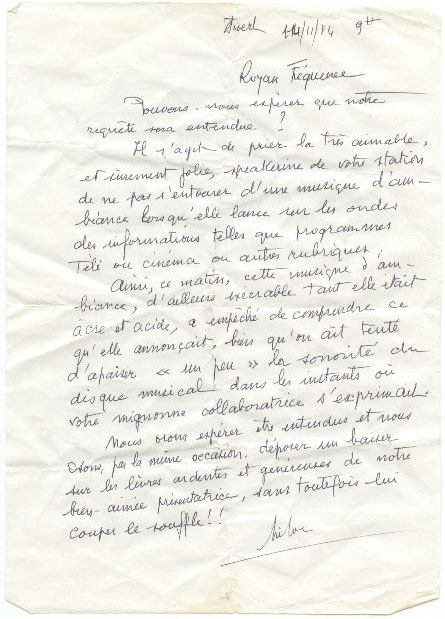 14/11/84 9H
Royan Fréquence
Pouvons-nous espérer que notre
requête sera entendue ?
Il s'agit de prier la très aimable,
et sûrement jolie, speakerine de votre station
de ne pas s'entourer d'une musique d'am-
biance lorsqu'elle lance sur les ondes
des informations telles que programmes
Télé ou cinéma ou autres rubriques.
Ainsi, ce matin, cette musique d'am-
biance, d'ailleurs exécrable tant elle était
âcre et acide, a empêché de comprendre ce
qu'elle annonçait, bien qu'on ait tenté
d'apaiser « un peu » la sonorité du
disque musical dans les instants où
votre mignonne collaboratrice s'exprimait.
Nous osons espérer être entendus et nous
osons, par la même occasion, déposer un baiser
sur les lèvres ardentes et généreuses de notre
bien-aimée présentatrice, sans toutefois lui
couper le souffle !!